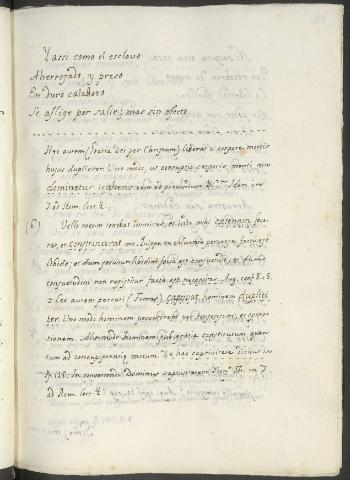 Y assi como el esclavo
Aherrojado, y preso
En duro calabozo
Se aflige por salir; mas sin efecto
Itge autem (Gratia dei per Christum) liberat a corpore mortis
hujus dupliciter. Uno modo, ut corruptio corporis menti non
dominetur
ad Rom. lect. 4.
Velle meum tenebat inimicus, et inde mihi catenam fece-
rat, et constrinxerat me. Quippe ex voluntate perversa facta est
libido; et dum servitur libidini facta est consuetudo, et dum
consuetudini non resistitur facta est necessitas. Aug. conf. 8. 5.
Lex autem peccati (Fomes) captivat hominem duplici-
ter. Uno modo hominem peccatorem per consensum, et opera-
tionem. Alio modo hominem sub gratia constitutum quan-
tum ad concupiscentiæ motum. De hac captivitate dicitur in
Ps. 125. In convertendo Dominus captivitatem Sion. Th. in 7
ad Rom. lect. 4.